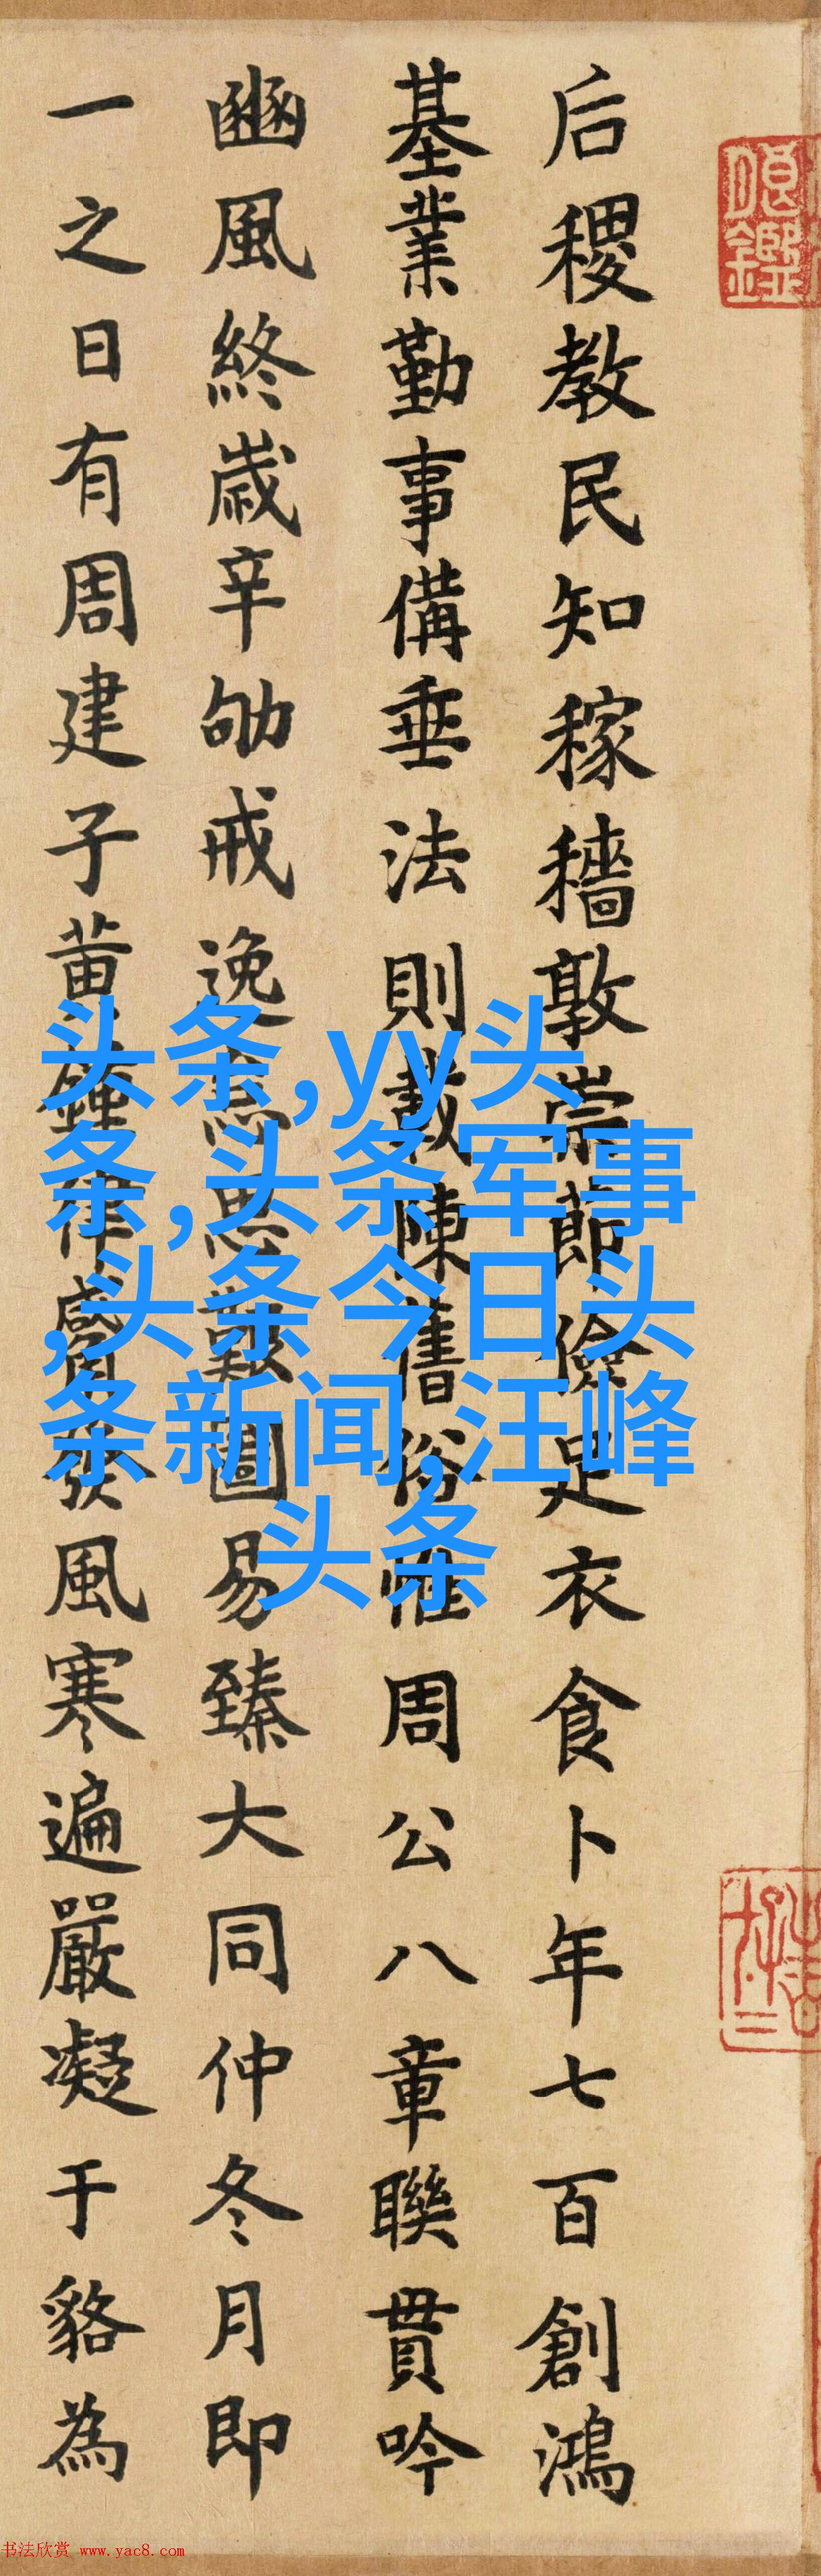 后稷教民知稼穡敦崇節儉足衣食卜年七百創鴻
基業勤事備垂法則載陳舊俗惟周公八章聯貫吟
豳風終歲辛劬戒逸思艱圖易臻大同仲冬月即
一之日有周建子黃鍾律觱發風寒遍嚴凝于貉為
头条,yy头
条,头条军事
,头条今日头
条新闻,汪峰
头条
书法欣赏 www.yac8.com